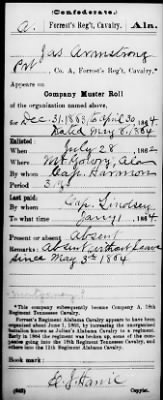 (Confederate.)
A. Forrest's Reg't, Cavalry. Ala.
Jas Armstrong
Pvt, Co. A, Forrest's Reg't, Cavalry.*
Appears on
Company Muster Roll
of the organization named above,
for Dec. 31, 1863, to April 30, 1864.
Dated May 8, 1864
Enlisted:
When July 28, 1862
Where
By whom Cap. Harmon
Period 3
Last paid:
By whom Cap. Lindsey
To what time Jany 1, 1864
Present or absent Absent
Remarks: Absent without Leave
since May 3rd 1864
*This company subsequently became Company A, 18th
Regiment Tennessee Cavalry.
Forrest's Regiment Alabama Cavalry appears to have been
organized about June 1, 1863, by increasing the unorganized
battalion known as Julian's Alabama Cavalry to a regiment.
Early in 1864 the regiment was broken up, some of the companies
going into the 18th Regiment Tennessee Cavalry, and
others into the 12th Regiment Alabama Cavalry.
Book mark:
Copyist.